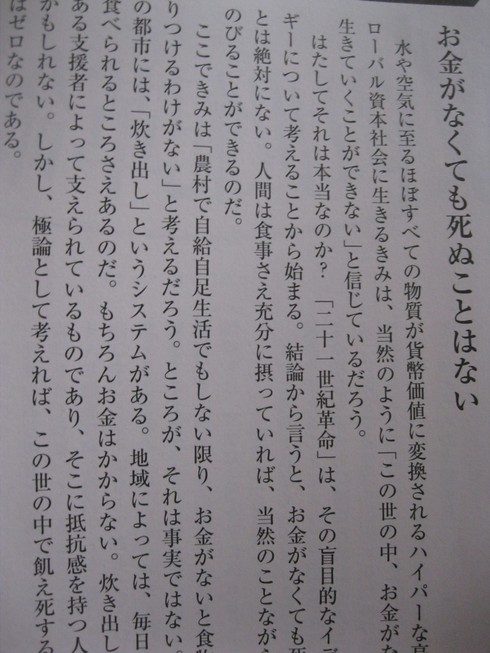 お金がなくても死ぬことはない
水や空気に至るほぼすべての物質が貨幣価値に変換されるハイパーな
ローバル資本社会に生きるきみは、当然のように「この世の中、お金が
生きていくことができない」と信じているだろう。
はたしてそれは本当なのか？　「二十一世紀革命」は、その盲目的なイデ
ギーについて考えることから始まる。結論から言うと、お金がなくても死
とは絶対にない。人間は食事さえ充分に摂っていれば、当然のことなが
のびることができるのだ。
ここできみは「農村で自給自足生活でもしない限り、お金がないと食
りつけるわけがない」と考えるだろう。ところが、それは事実ではない。
の都市には、「炊き出し」というシステムがある。地域によっては、毎日
食べられるところさえあるのだ。もちろんお金はかからない。炊き出し
ある支援者によって支えられているものであり、そこに抵抗感を持つ人
かもしれない。しかし、極論として考えれば、この世の中で飢え死する
はゼロなのである。